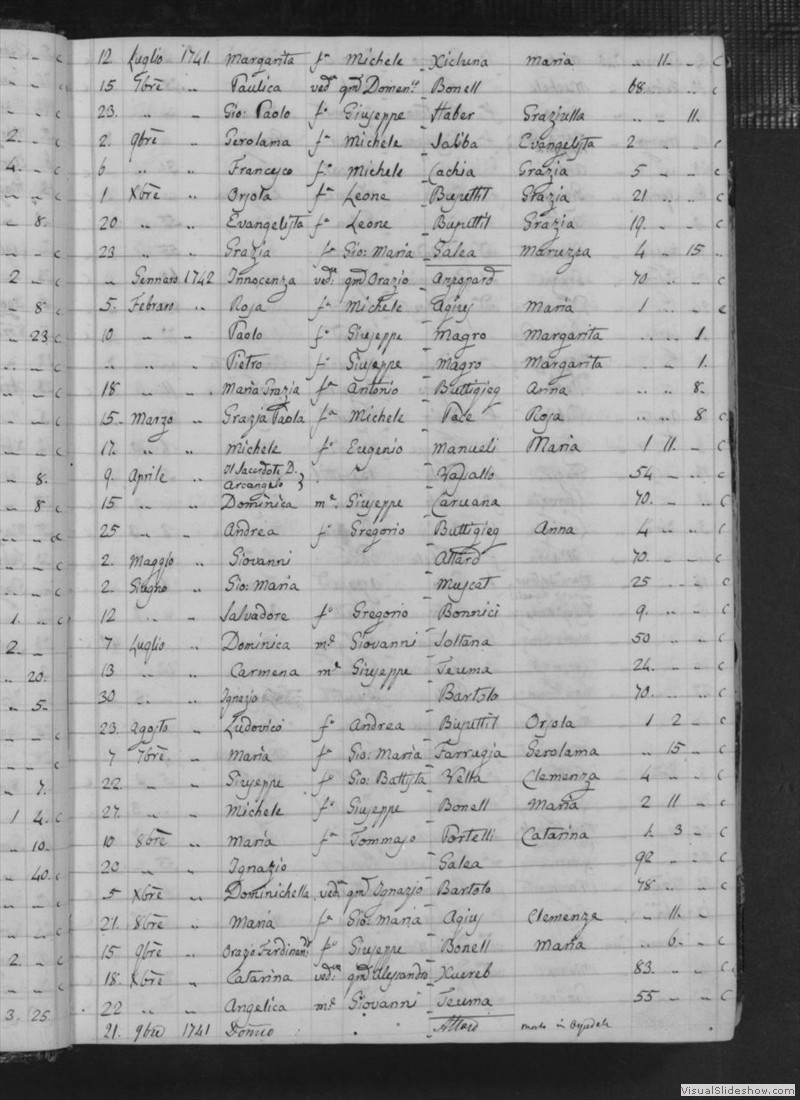 12 Luglio 1741 Margarita fa Michele Xicluna Maria .. 11. - C
15 7bre .. Paulica veda qm Domenco Bonell 68. .. C
23. .. .. Gio: Paolo fo Giuseppe Haber Graziulla .. .. 11.
2. 9bre .. Gerolama fa Michele Saliba Evangelista 2 .. - C
6 .. .. Francesco fo Michele Cachia Grazia 5 - - C
1 Xbre .. Orsola fa Leone Buputtil Grazia 21 .. .. C
20 .. .. Evangelista fa Leone Buputtil Grazia 19. - - C
23 .. .. Grazia fa Gio: Maria Galea Maruzza 4 - 15 ..
.. Gennaro 1742 Innocenza veda qm Orazio Azzopard 70 .. - C
5. Febraro .. Rosa fa Michele Agius Maria 1 .. - C
10 .. .. Paolo fo Giuseppe Magro Margarita .. .. 1.
.. .. .. Pietro fo Giuseppe Magro Margarita .. 1.
18 .. .. Maria Grazia fa Antonio Buttigieg Anna .. .. 8.
15. Marzo .. Grazia Paola fa Michele Pace Rosa .. .. 8 C
17. .. .. Michele fo Eugenio Manueli Maria 1 11. - C
9. Aprile .. Il Sacerdote D. Arcangelo } Vassallo 54 - - C
15 .. .. Dominica me. Giuseppe Caruana 70. - .. C
25 .. .. Andrea fo Gregorio Buttigieg Anna 4 .. .. C
2. Maggio .. Giovanni Attard 70. - - C
2. Giugno .. Gio: Maria Muscat 25 - - C
12 .. .. Salvadore fo Gregorio Bonnici 9. .. .. C
7 Luglio .. Dominica me Giovanni Soltana 50 .. .. C
13 .. .. Carmena me Giuseppe Teuma 24. - - C
30 .. .. Ignazio Bartolo 70. .. .. C
23. Agosto .. Ludovico fo Andrea Buputtil Orsola 1 2 - C
7 7bre .. Maria fa Gio: Maria Farrugia Gerolama .. 15 .. C
22. - - Giuseppe fo Gio: Battista Vella Clemenza 4 .. - C
27. .. .. Michele fo Giuseppe Bonell Maria 2 11 - C
10 8bre .. Maria fa Tommaso Portelli Catarina 3 - C
20 .. .. Ignazio Galea 92 .. - C
5 Xbre .. Dominichella veda qm Ignazio Bartolo 78 .. - C
21. 8bre .. Maria fa Gio: Maria Agius Clemenza - 11. -
15 9bre .. Orazio Ferdinando fo Giuseppe Bonell Maria .. 6. - C
18. Xbre .. Catarina veda qm Alesandro Xuereb 83. .. - C
22 .. .. Angelica me Giovanni Teuma 55 - - C
21. 9bre 1741 Domco Attard